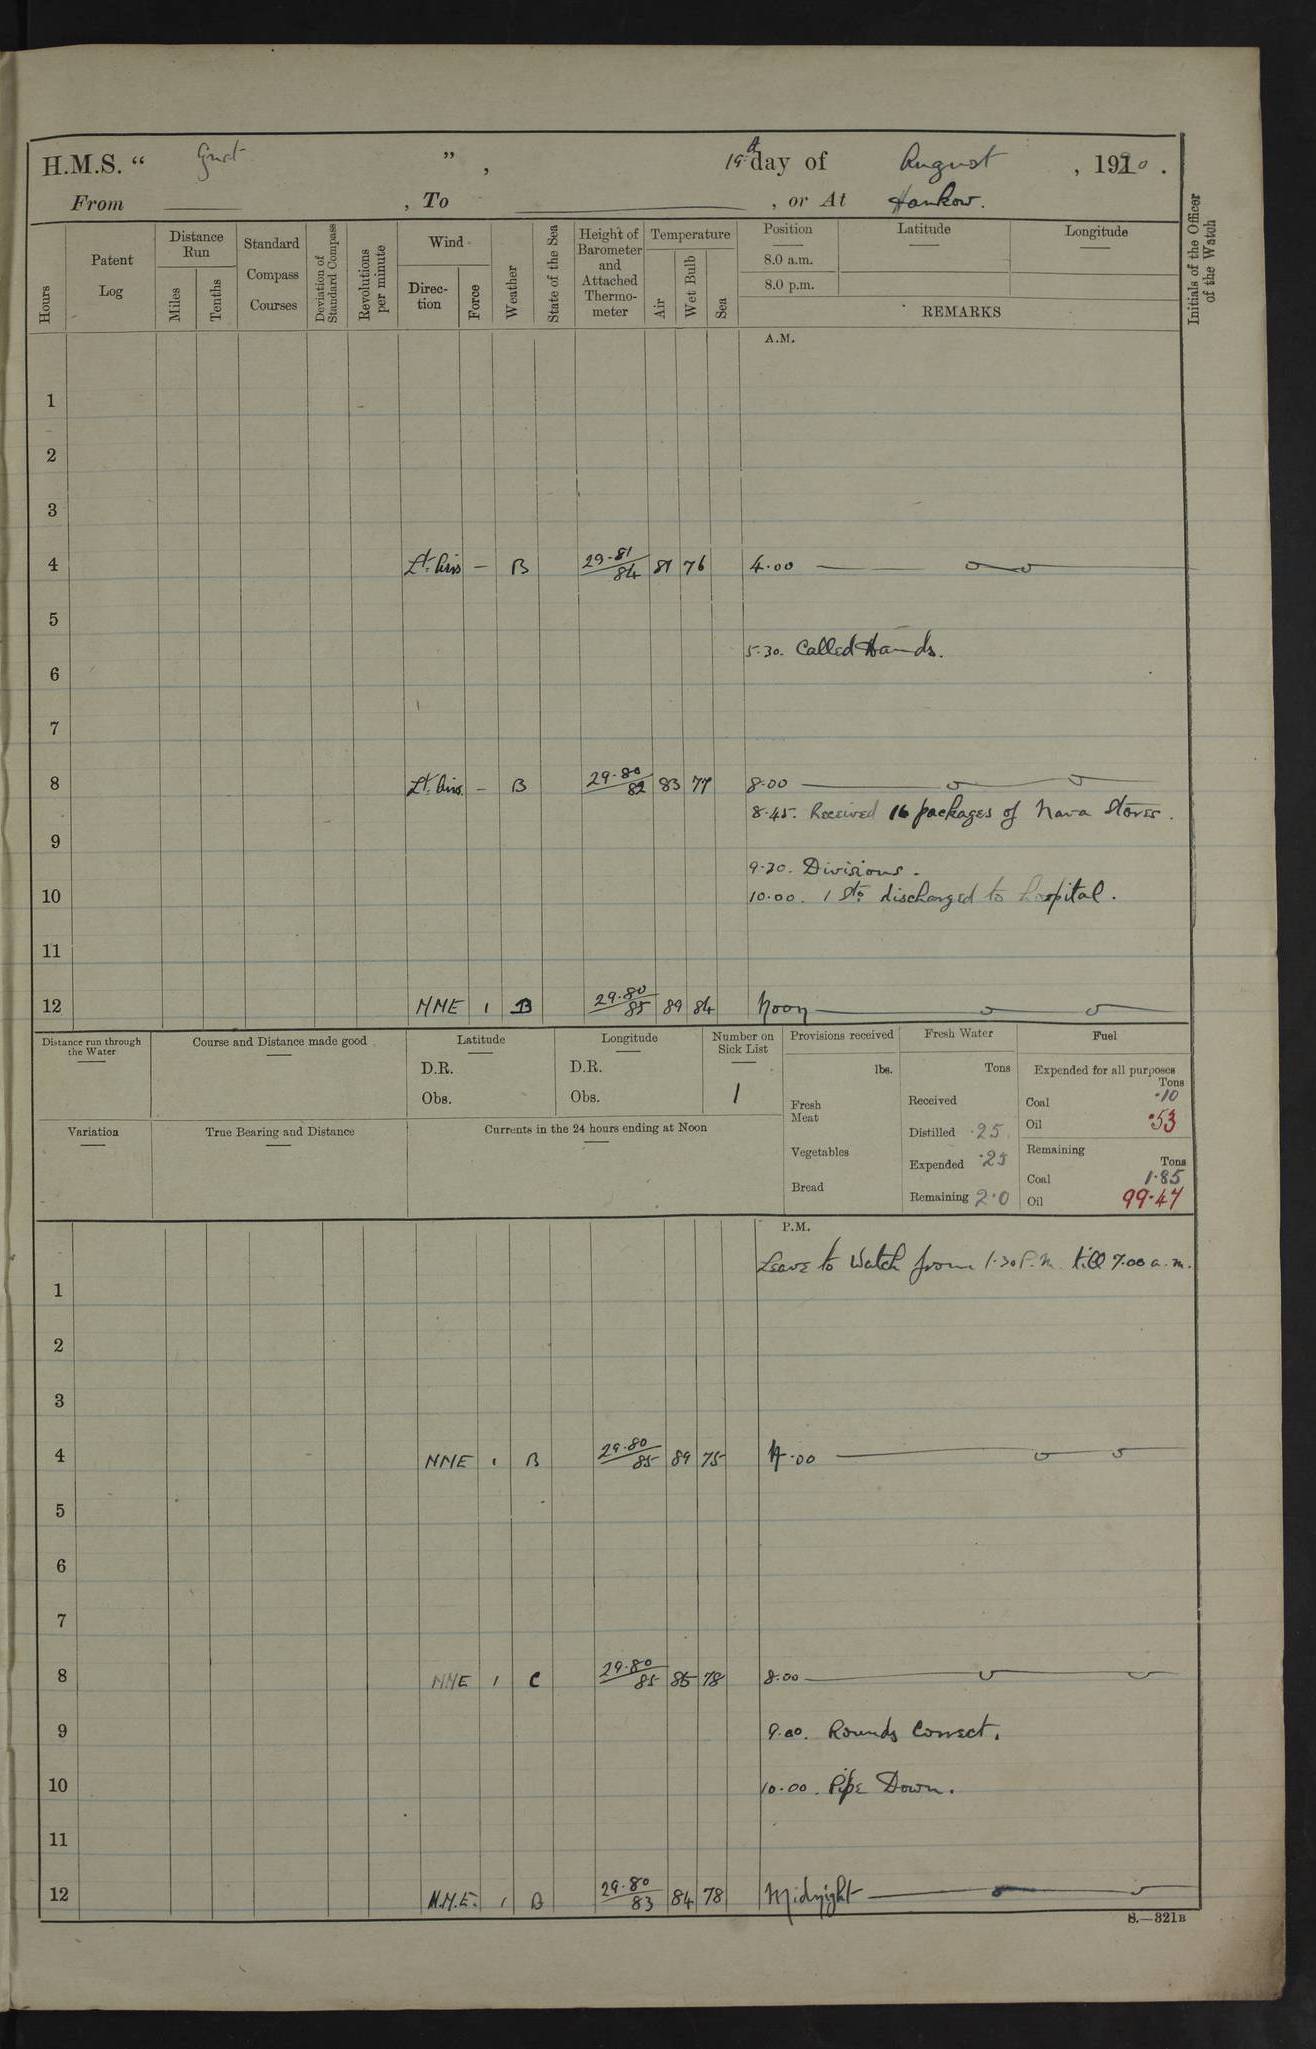 H.M.S. “ Gnat ”, 19th day of August, 1920.
From , To , or At Hankow.
Hours
Patent Log
Distance Run
Miles
Tenths
Standard Compass Courses
Deviation of Standard Compass
Revolutions per minute
Wind
Direction
Force
Weather
State of the Sea
Height of Barometer and Attached Thermometer
Temperature
Air
Wet Bulb
Sea
Position
Latitude
Longitude
8.0 a.m.
8.0 p.m.
REMARKS
Initials of the Officer of the Watch
A.M.
1
2
3
4 Lt. Airs — B 29.81/84 81 76 4.00
5
5.30. Called Hands.
6
7
8 Lt. Airs. — B 29.80/82 83 77 8.00
8.45. Received 16 packages of Nava Stores.
9
9.30. Divisions.
10 10.00. 1 Sto. discharged to hospital.
11
12 NNE 1 B 29.80/85 89 84 Noon
Distance run through the Water
Course and Distance made good
Latitude
D.R.
Obs.
Longitude
D.R.
Obs.
Number on Sick List
1
Provisions received
lbs.
Fresh Meat
Vegetables
Bread
Fresh Water
Tons
Received
Distilled .25
Expended .25
Remaining 2.0
Fuel
Expended for all purposes
Tons
Coal .10
Oil .53
Remaining
Tons
Coal 1.85
Oil 99.47
Variation
True Bearing and Distance
Currents in the 24 hours ending at Noon
P.M.
Leave to Watch from 1.30 P.M. till 7.00 a.m.
1
2
3
4 NNE 1 B 29.80/85 89 75 4.00
5
6
7
8 NNE 1 C 29.80/85 85 78 8.00
9 9.00. Rounds Correct.
10 10.00. Pipe Down.
11
12 N.N.E. 1 B 29.80/83 84 78 Midnight
S.—321B